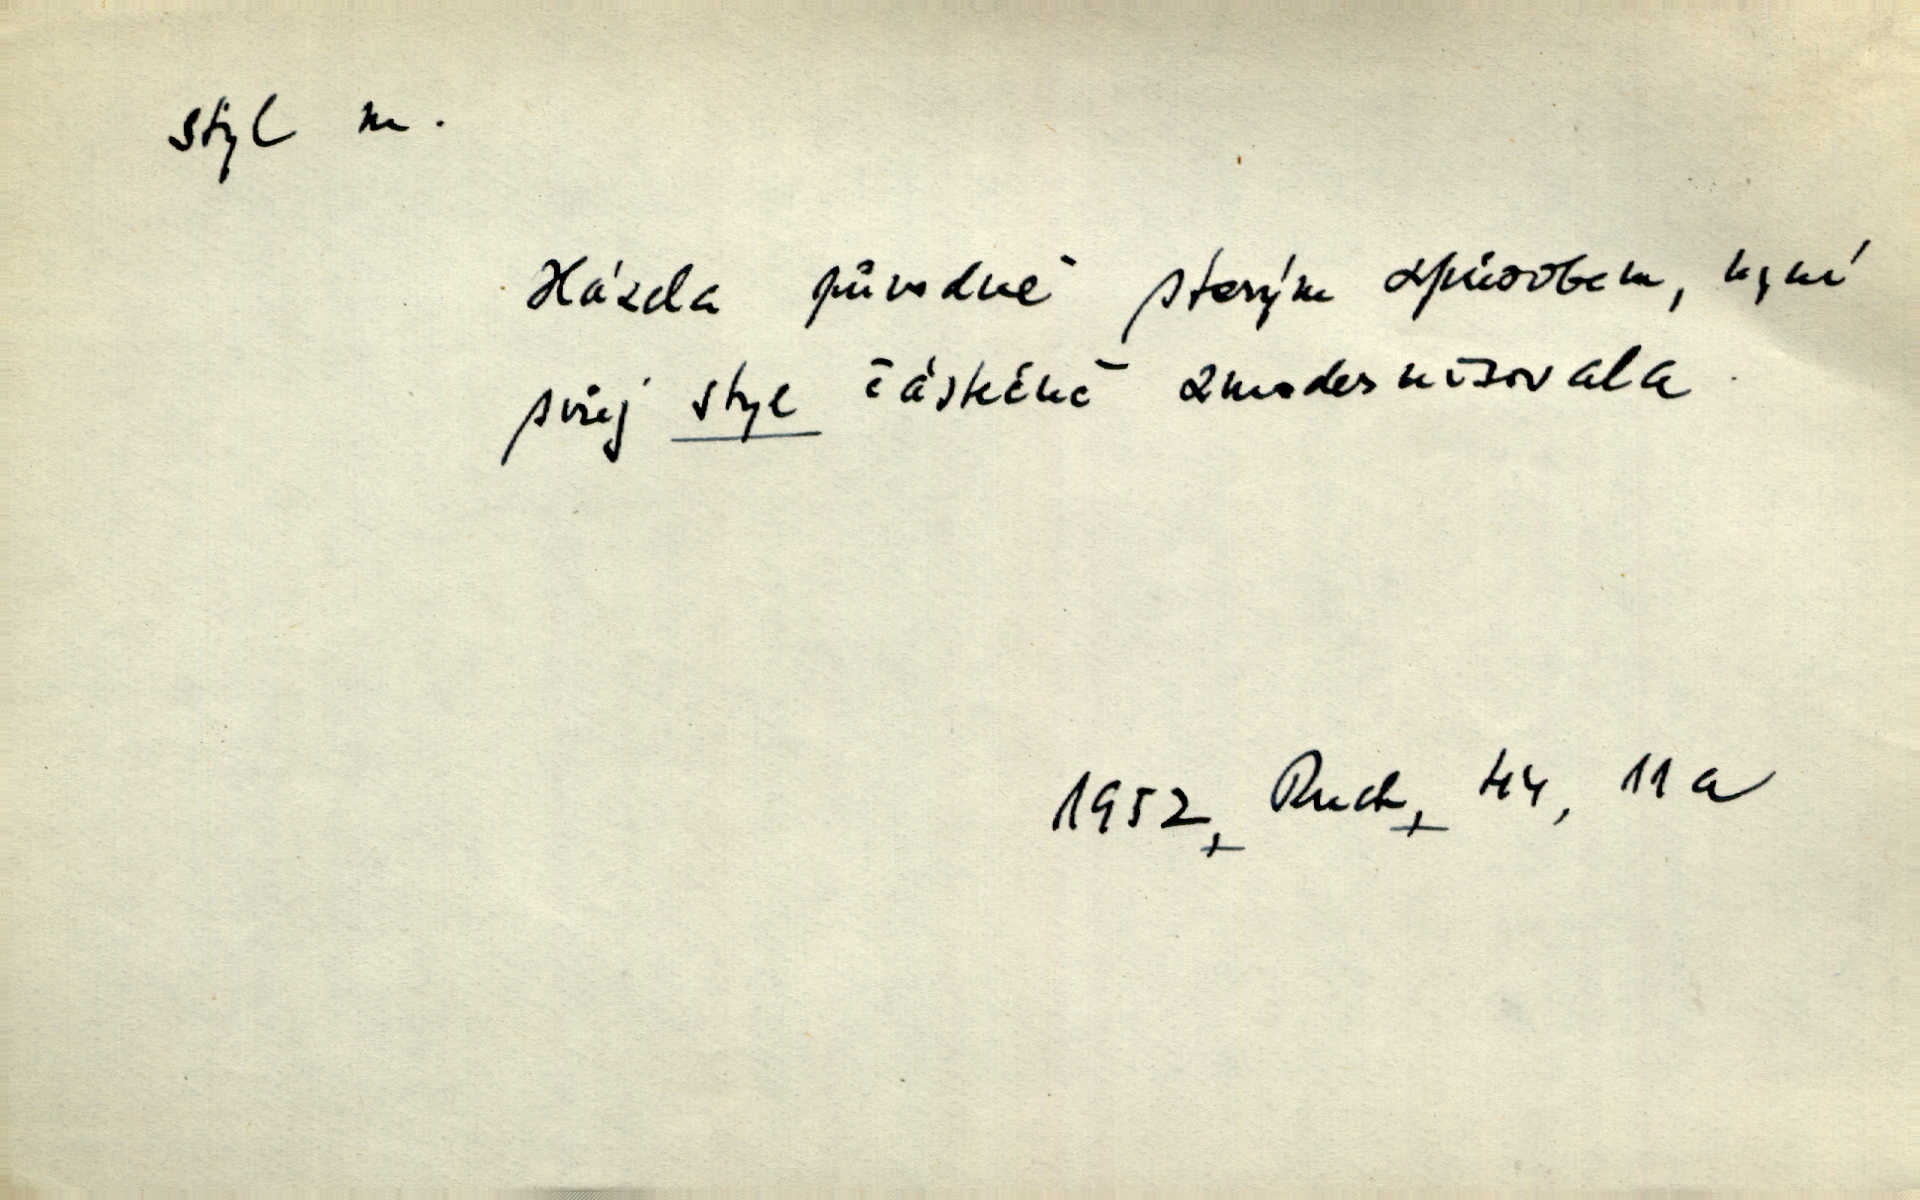 styl m.
Házela původně starým způsobem, nyní
svůj styl částečně zmodernisovala.
1952, Ruch, 44, 11a